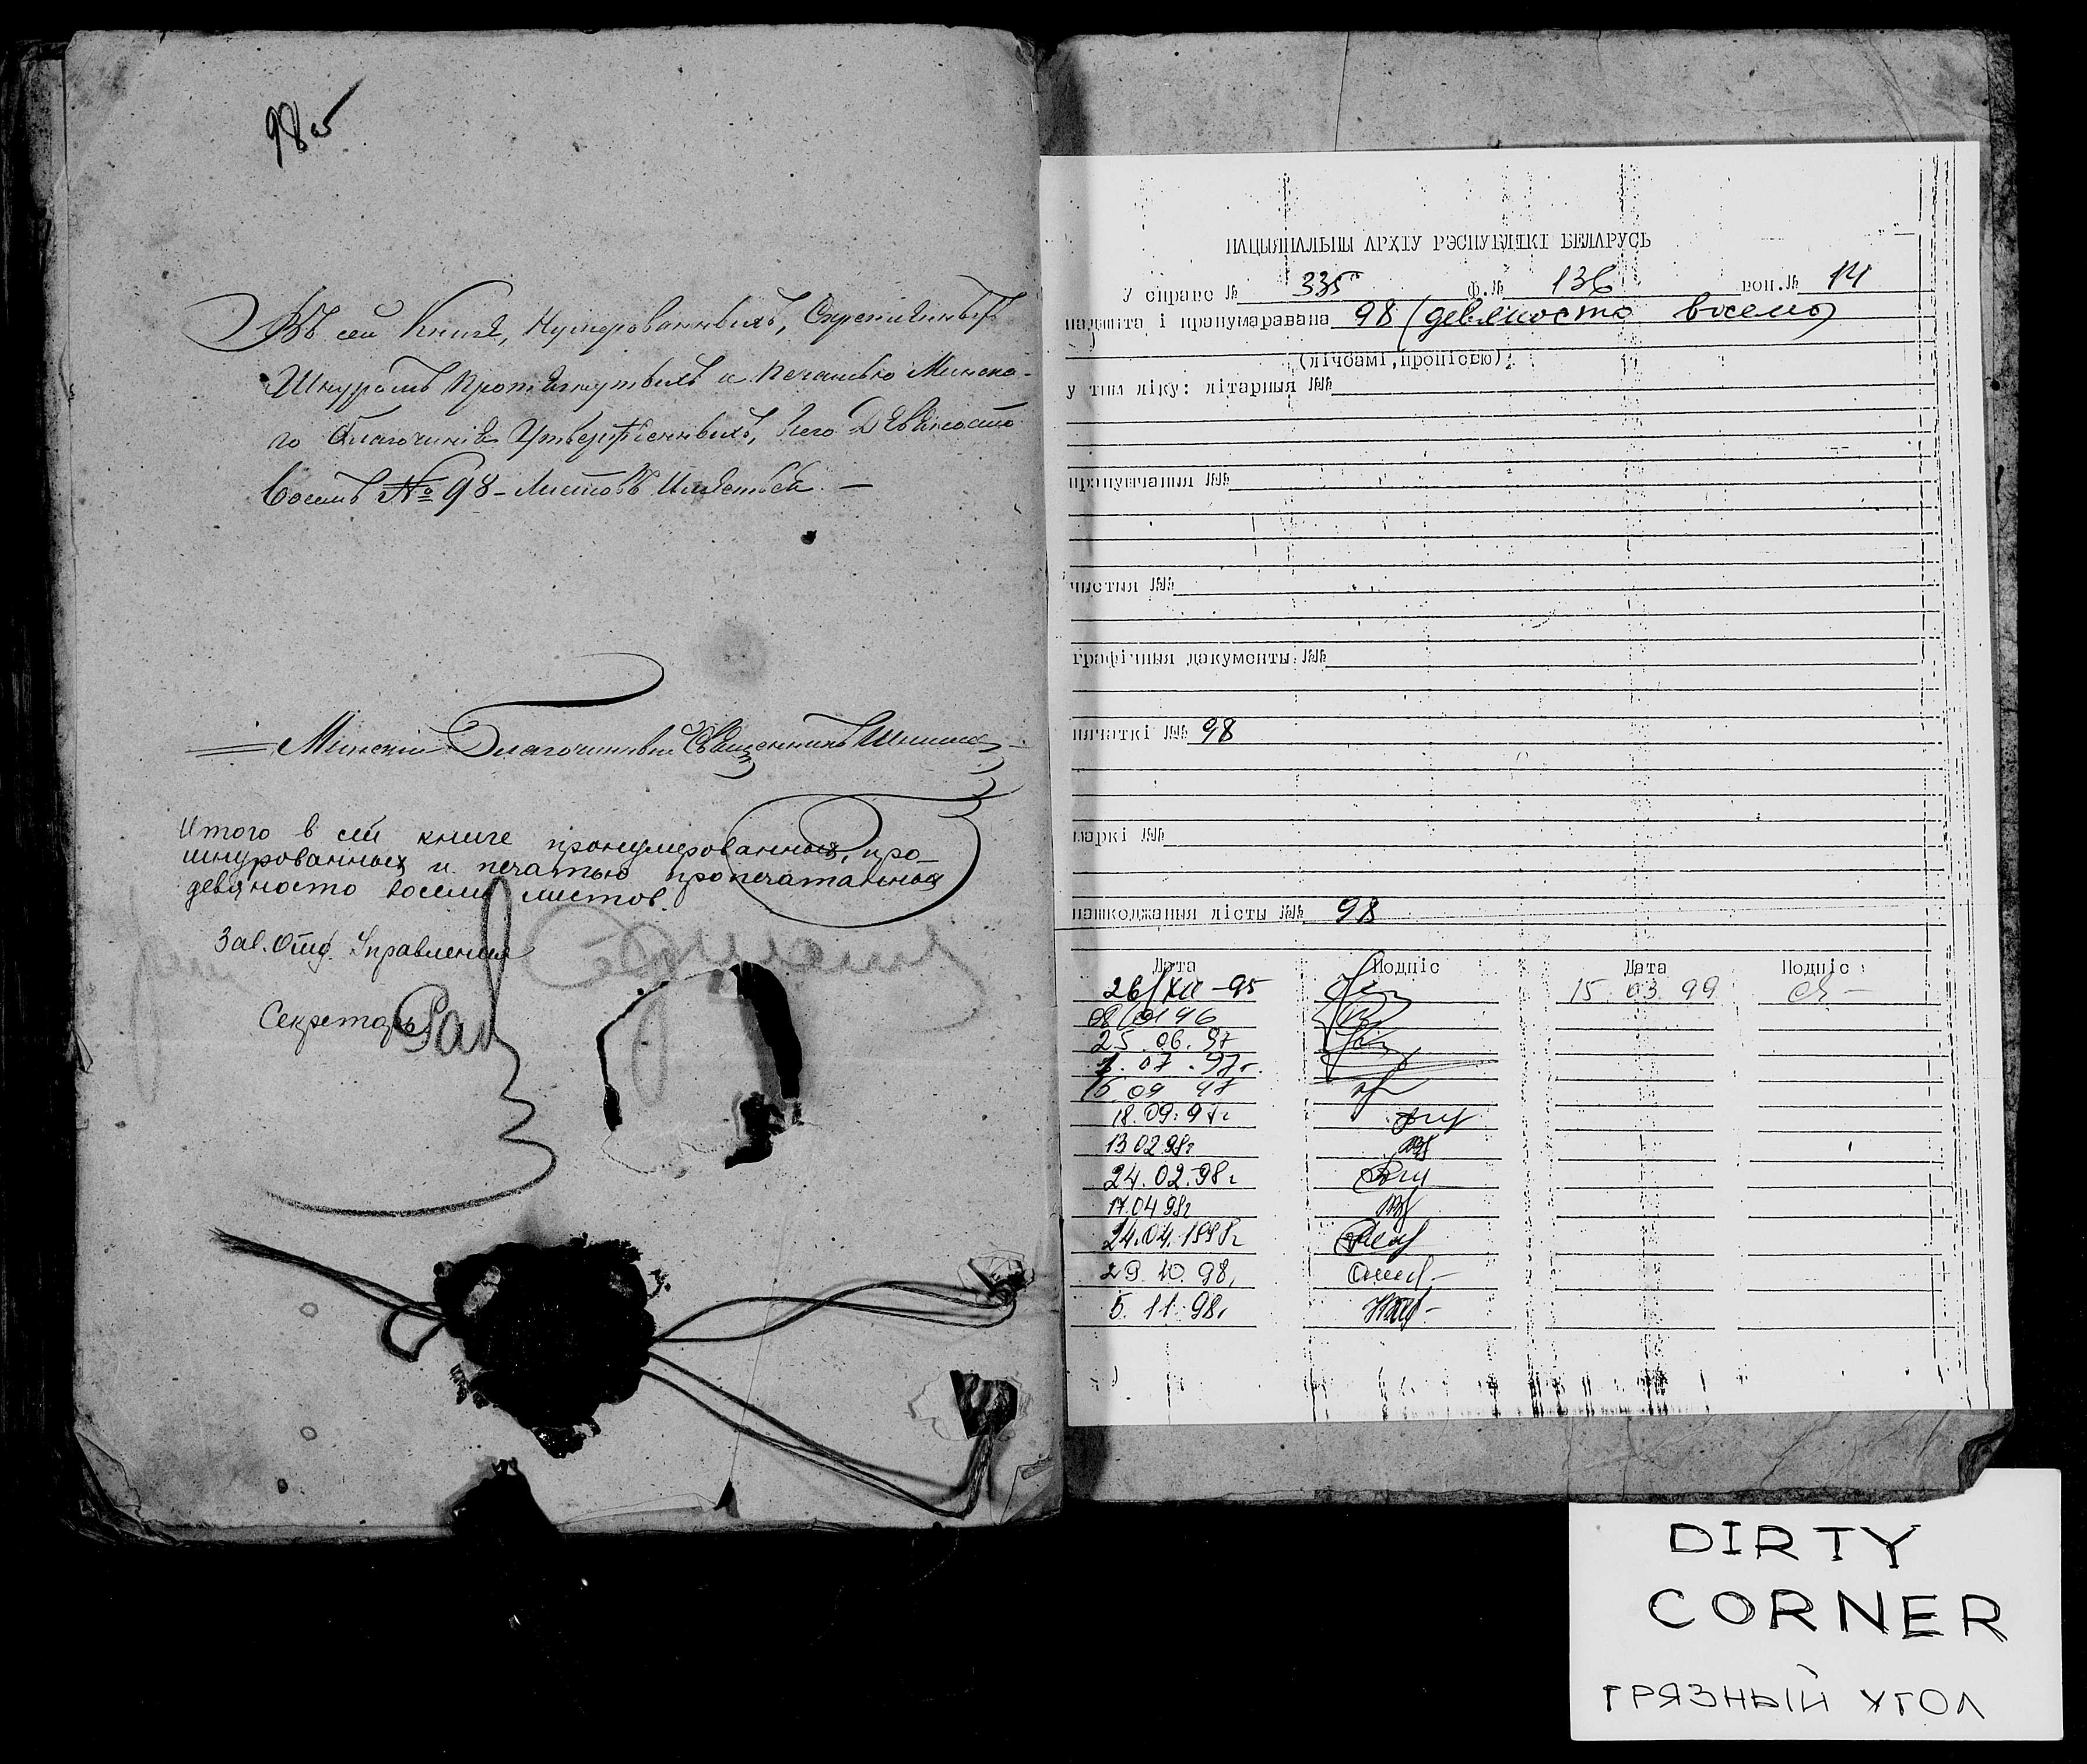 98
Въ сей Книгѣ, Нумерованныхъ, Скрепленныхъ
Шнуромъ протянутыхъ и печатью Минска-
го благочинія Утвержденныхъ, всего Девяносто
восемь № 98 - Листовъ Имѣется —
Минскій Благочинный Священникъ
Итого в сей книге пронумерованных, про-
шнурованных и печатью пропечатанных
девяносто восемь листов.
Зав. Отд. Управления
Секретарь
НАЦЫЯНАЛЬНЫ АРХІУ РЭСПУБЛІКІ БЕЛАРУСЬ
У справе № 335 ф.№ 136 воп.№ 14
падшыта і пранумаравана 98 (девяносто восемь)
(лічбамі, пропіссю)
у тым ліку: літарныя №№
прапушчаныя №№
чыстыя №№
графічныя дакументы №№
пячаткі №№ 98
маркі №№
пашкоджаныя лісты №№ 98
Дата Подпіс Дата Подпіс
26/XII-95 15.03.99
25.06.97
18.09.97г
13.02.98г
24.02.98г
17.04.98г
24.04.1998г
29.10.98г
5.11.98г
DIRTY
CORNER
ГРЯЗНЫЙ УГОЛ